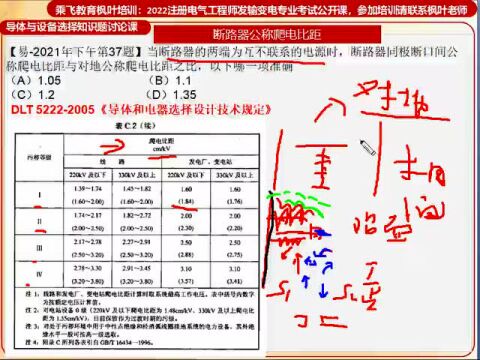 乘飞教育枫叶培训：2022注册电气工程师发输变电专业考试公开课，参加培训请联系枫叶老师
导体与设备选择知识题讨论课
断路器公称爬电比距
【易-2021年下午第37题】当断路器的两端为互不联系的电源时，断路器同极断口间公
称爬电比距与对地公称爬电比距之比，以下哪一项准确
（A）1.05 （B）1.1
（C）1.2 （D）1.35
DLT 5222-2005《导体和电器选择设计技术规定》
表 C.2（续）
污秽等级 爬电比距 cm/kV
线 路 发电厂、变电站
220kV 及以下 330kV 及以上 220kV 及以下 330kV 及以上
Ⅰ 1.39～1.74 (1.60～2.00) 1.45～1.82 (1.60～2.00) 1.60 (1.84) 1.60 (1.76)
Ⅱ 1.74～2.17 (2.00～2.50) 1.82～2.27 (2.00～2.50) 2.00 (2.30) 2.00 (2.20)
Ⅲ 2.17～2.78 (2.50～3.20) 2.27～2.91 (2.50～3.20) 2.50 (2.88) 2.50 (2.75)
Ⅳ 2.78～3.30 (3.20～3.80) 2.91～3.45 (3.20～3.80) 3.10 (3.57) 3.10 (3.41)
注 1：线路和发电厂、变电站爬电比距计算时取系统最高工作电压。表中括号内数字为按额定电压计算值。
注 2：对电站设备 0 级（220kV 及以下爬电比距为 1.48cm/kV、330kV 及以上爬电比距为 1.55cm/kV），目前保留作为过渡时期的污级。
注 3：对处于污秽环境中用于中性点绝缘和经消弧线圈接地系统的电力设备，其外绝缘水平一般可按高一级选取。
注 4：附录 C 所列各表引自 GB/T 16434—1996。
对地
S₁